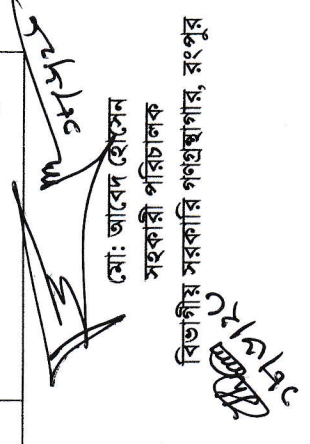 মো: আবেদ হোসেন
সহকারী পরিচালক
বিভাগীয় সরকারি গণগ্রন্থাগার, রংপুর